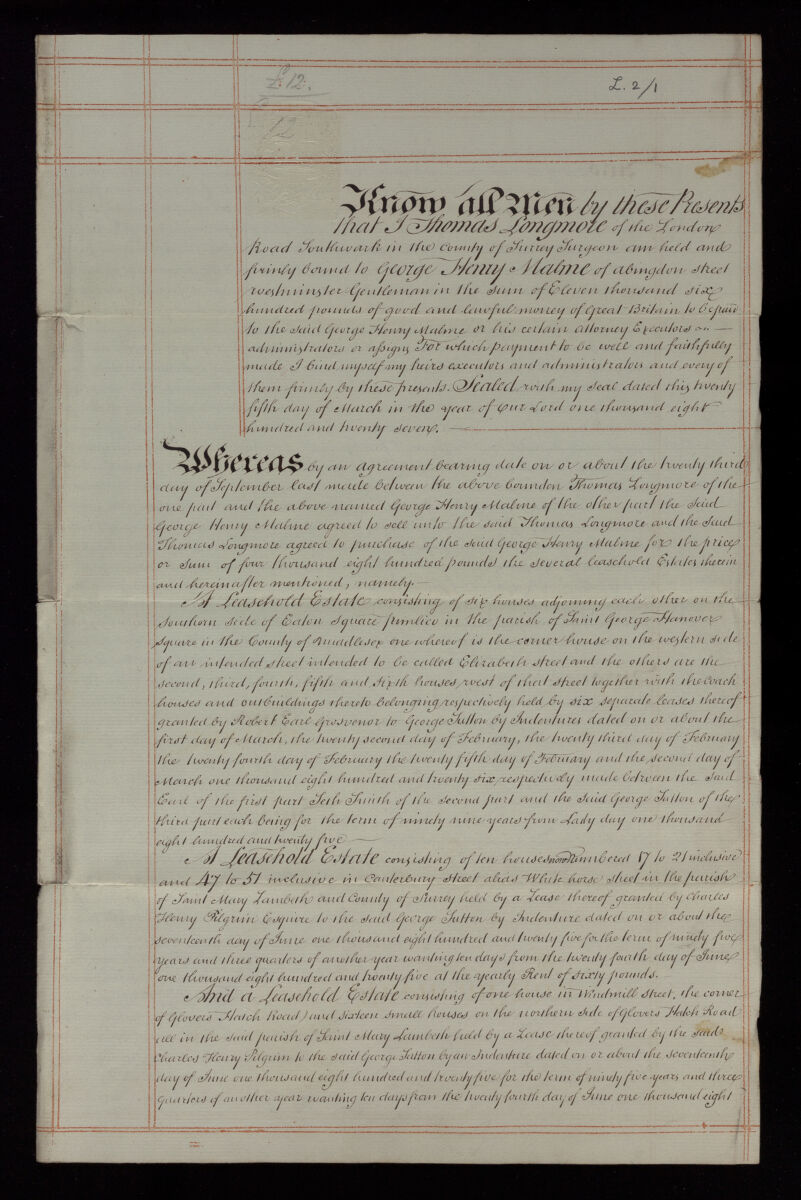 £.12.
L. 2/1
12
Know all Men by these Presents
that I Thomas Longmore of the London
Road Southwark in the County of Surrey Surgeon am held and
firmly bound to George Henry Malme of abingdon street
westminster Gentleman in the sum of Eleven thousand six
hundred pounds of good and lawful money of Great Britain to be paid
to the said George Henry Malme or his certain attorney Executors
administrators or assigns For which payment to be well and faithfully
made I bind myself my heirs executors and administrators and every of
them firmly by these presents. Sealed with my seal dated this twenty
fifth day of March in the year of Our Lord one thousand eight
hundred and twenty seven.
Whereas by an agreement bearing date on or about the twenty third
day of September last made between the above bounden Thomas Longmore of the
one part and the above named George Henry Malme of the other part the said
George Henry Malme agreed to sell unto the said Thomas Longmore and the said
Thomas Longmore agreed to purchase of the said George Henry Malme for the price
or sum of four thousand eight hundred pounds the several leasehold Estates therein
and hereinafter mentioned, namely.
A Leasehold Estate consisting of six houses adjoining each other on the
southern side of Eaton Square pimlico in the parish of Saint George Hanover
Square in the County of Middlesex one whereof is the corner house on the western side
of an intended street intended to be called Elizabeth street and the others are the
second, third, fourth, fifth and sixth houses, west of that street together with the coach
houses and outbuildings thereto belonging respectively held by six separate leases thereof
granted by Robert Earl Grosvenor to George Sutton by Indentures dated on or about the
first day of March, the twenty second day of February, the twenty third day of February
the twenty fourth day of February the twenty fifth day of February and the second day of
March one thousand eight hundred and twenty six respectively made between the said
Earl of the first part Seth Smith of the second part and the said George Sutton of the
third part each being for the term of ninety nine years from Lady day one thousand
eight hundred and twenty five
A Leasehold Estate consisting of ten houses now numbered 17 to 21 inclusive
and 47 to 51 inclusive in Canterbury street alias White horse street in the parish
of Saint Mary Lambeth and County of Surrey held by a Lease thereof granted by Charles
Henry Pilgrim Esquire to the said George Sutton by Indenture dated on or about the
seventeenth day of June one thousand eight hundred and twenty five for the term of ninety five
years and three quarters of another year wanting ten days from the twenty fourth day of June
one thousand eight hundred and twenty five at the yearly Rent of sixty pounds.
And a Leasehold Estate consisting of one house in Windmill street, the corner
of Glovers Hatch Road) and sixteen small houses on the northern side of Glovers Hatch Road
all in the said parish of Saint Mary Lambeth held by a Lease thereof granted by the said
Charles Henry Pilgrim to the said George Sutton by an Indenture dated on or about the seventeenth
day of June one thousand eight hundred and twenty five for the term of ninety five years and three
quarters of another year wanting ten days from the twenty fourth day of June one thousand eight